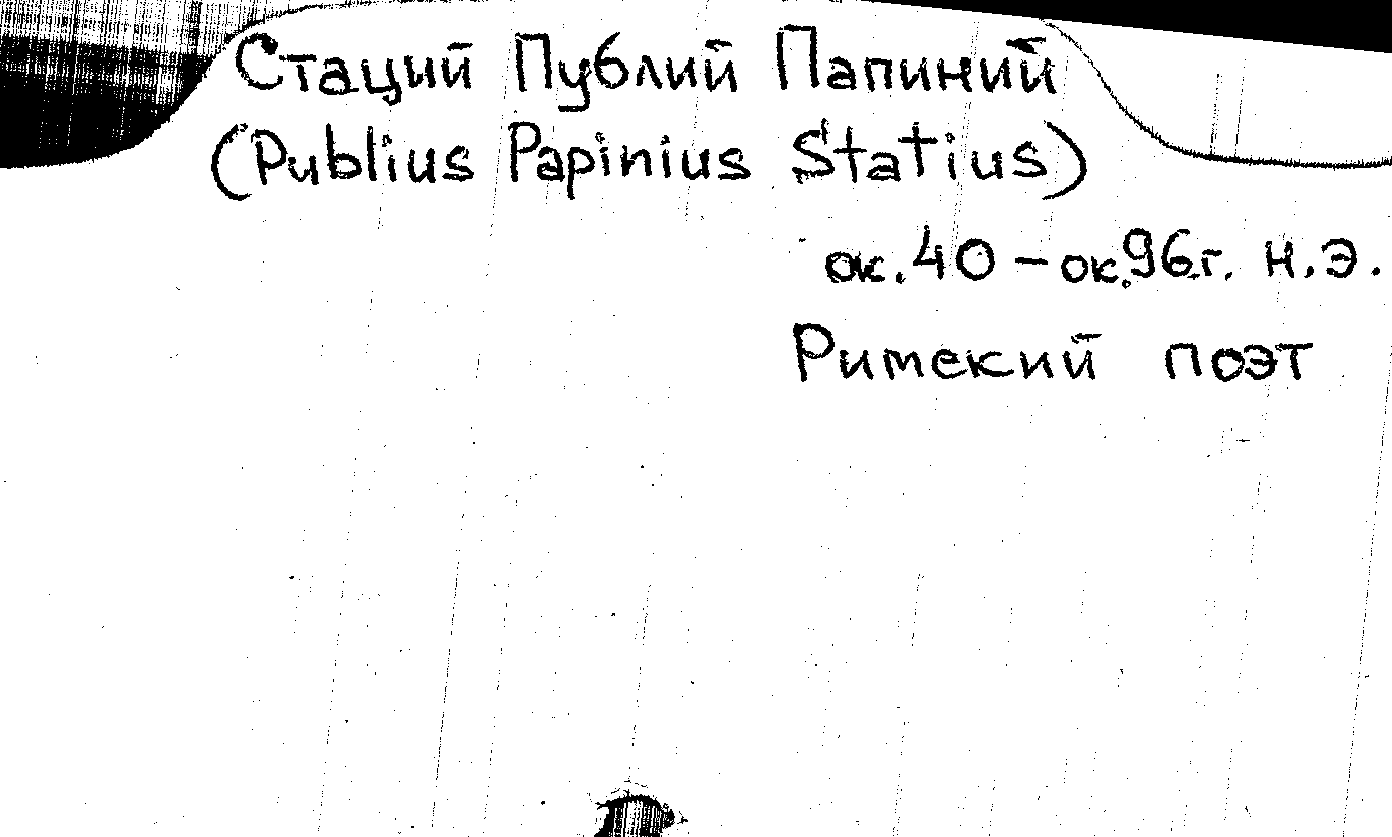 Стаций Публий Папиний
(Publius Papinius Statius)
ок. 40 – ок. 96 г. н.э.
Римский поэт